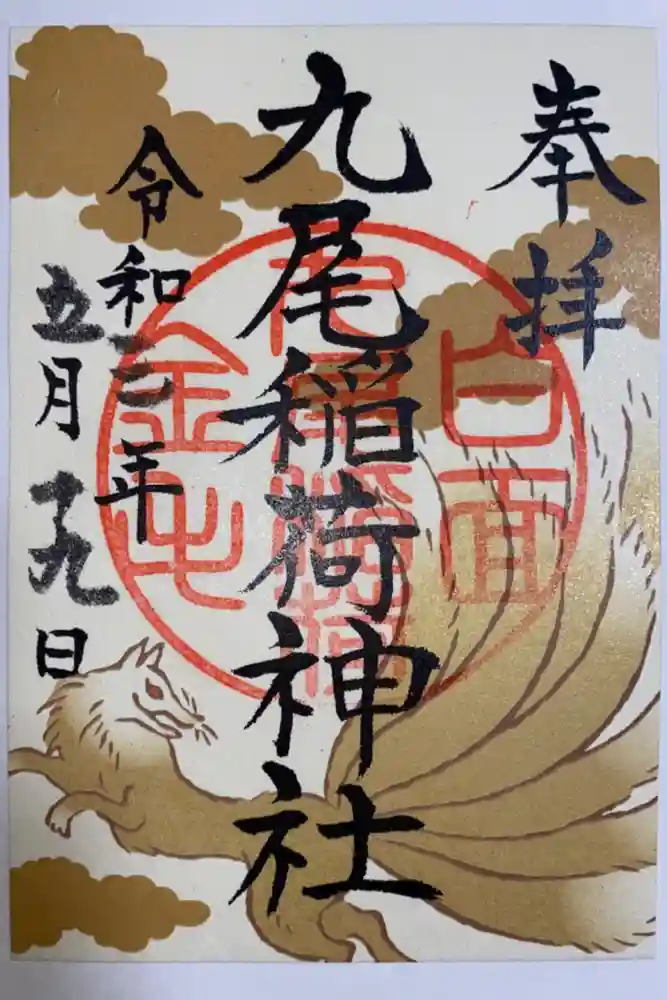 奉拝
九尾稲荷神社
令和三年
五月十九日
白面
九尾稲荷
金毛